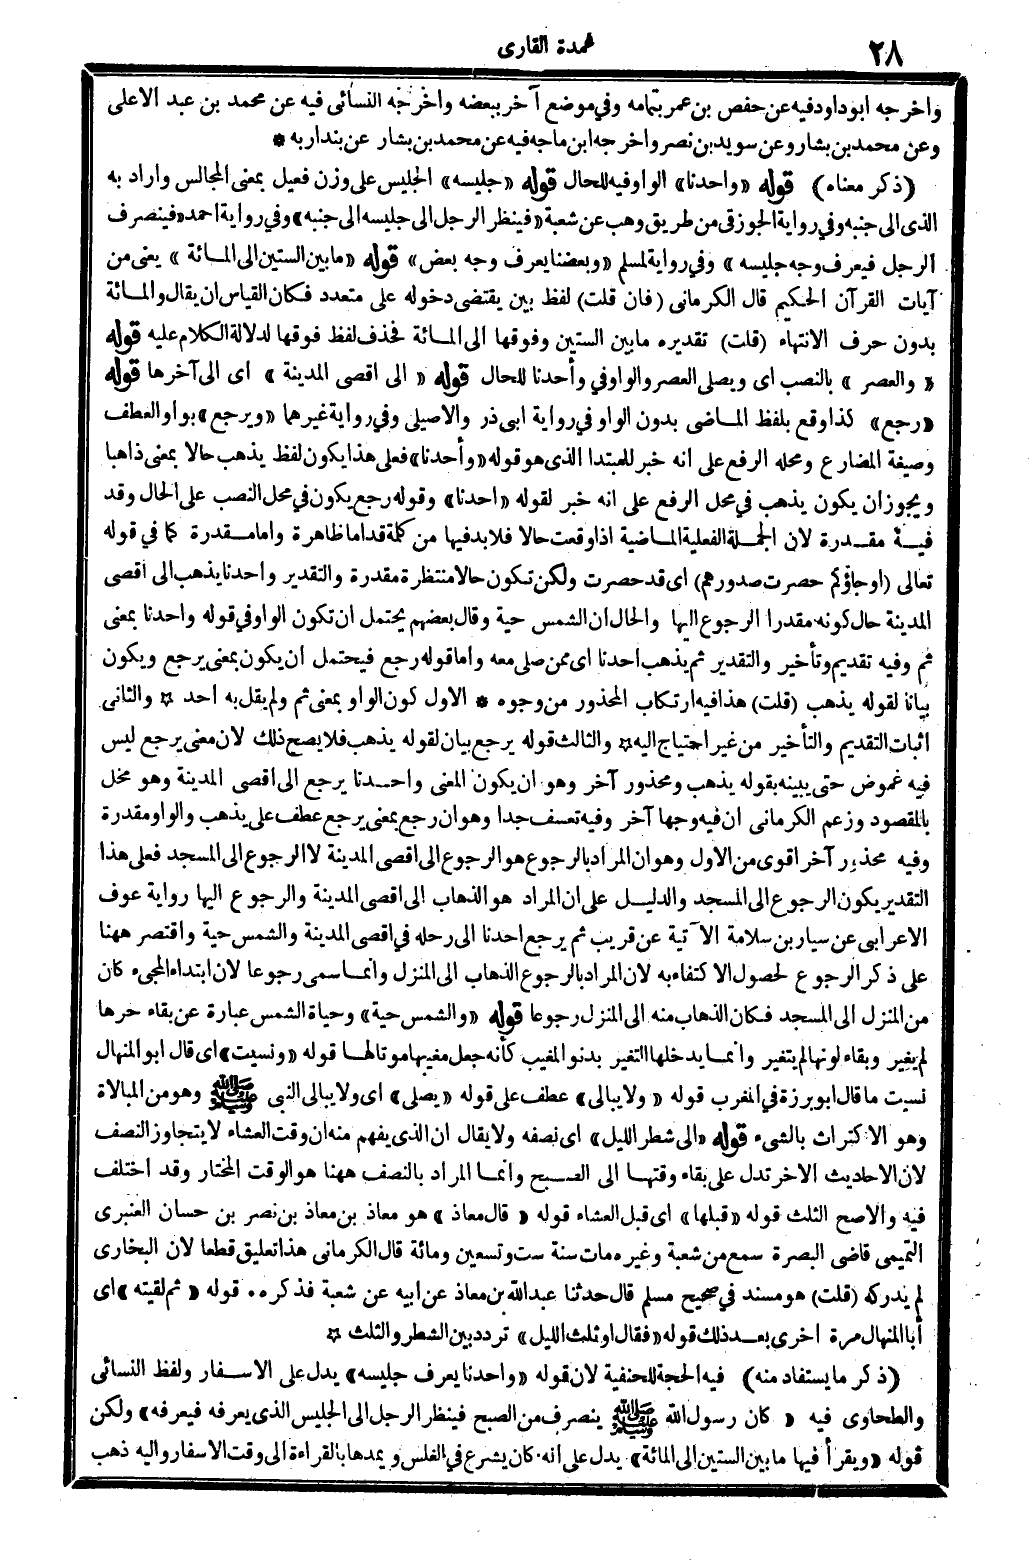 ٢٨
عمدة القارى
واخرجه ابوداود فيه عن حفص بن عمر بتمامه وفي موضع آخر ببعضه واخرجه النسائى فيه عن محمد بن عبد الاعلى
وعن محمد بن بشار وعن سويد بن نصر واخرجه ابن ماجه فيه عن محمد بن بشار عن بندار به *
(ذكر معناه) قوله «واحدنا» الواو فيه للحال قوله «جليسه» الجليس على وزن فعيل بمعنى المجالس واراد به
الذى الى جنبه وفي رواية الجوزقى من طريق وهب عن شعبة «فينظر الرجل الى جليسه الى جنبه» وفي رواية احمد «فينصرف
الرجل فيعرف وجه جليسه» وفي رواية لمسلم «وبعضنا يعرف وجه بعض» قوله «ما بين الستين الى المائة» يعنى من
آيات القرآن الحكيم قال الكرمانى (فان قلت) لفظ بين يقتضى دخوله على متعدد فكان القياس ان يقال والمائة
بدون حرف الانتهاء (قلت) تقديره ما بين الستين وفوقها الى المائة فحذف لفظ فوقها لدلالة الكلام عليه قوله
«والعصر» بالنصب اى ويصلى العصر والواو في وأحدنا للحال قوله «الى اقصى المدينة» اى الى آخرها قوله
«رجع» كذا وقع بلفظ الماضى بدون الواو في رواية ابى ذر والاصيلى وفي رواية غيرهما «ويرجع» بواو العطف
وصيغة المضارع ومحله الرفع على انه خبر للمبتدا الذى هو قوله «وأحدنا» فعلى هذا يكون لفظ يذهب حالا بمعنى ذاهبا
ويجوز ان يكون يذهب في محل الرفع على انه خبر لقوله «احدنا» وقوله رجع يكون في محل النصب على الحال وقد
فيه مقدرة لان الجملة الفعلية الماضية اذا وقعت حالا فلا بد فيها من كلمة قد اما ظاهرة واما مقدرة كما في قوله
تعالى (اوجاؤكم حصرت صدورهم) اى قد حصرت ولكن تكون حالا منتظرة مقدرة والتقدير واحدنا يذهب الى اقصى
المدينة حال كونه مقدرا الرجوع اليها والحال ان الشمس حية وقال بعضهم يحتمل ان تكون الواو في قوله واحدنا بمعنى
ثم وفيه تقديم وتأخير والتقدير ثم يذهب احدنا اى ممن صلى معه واما قوله رجع فيحتمل ان يكون بمعنى يرجع ويكون
بيانا لقوله يذهب (قلت) هذا فيه ارتكاب المحذور من وجوه * الاول كون الواو بمعنى ثم ولم يقل به احد * والثانى
اثبات التقديم والتأخير من غير احتياج اليه * والثالث قوله يرجع بيان لقوله يذهب فلا يصح ذلك لان معنى يرجع ليس
فيه غموض حتى يبينه بقوله يذهب ومحذور آخر وهو ان يكون المعنى واحدنا يرجع الى اقصى المدينة وهو مخل
بالمقصود وزعم الكرمانى ان فيه وجها آخر وفيه تعسف جدا وهو ان رجع بمعنى يرجع عطف على يذهب والواو مقدرة
وفيه محذور آخر اقوى من الاول وهو ان المراد بالرجوع هو الرجوع الى اقصى المدينة لا الرجوع الى المسجد فعلى هذا
التقدير يكون الرجوع الى المسجد والدليل على ان المراد هو الذهاب الى اقصى المدينة والرجوع اليها رواية عوف
الاعرابى عن سيار بن سلامة الآتية عن قريب ثم يرجع احدنا الى رحله في اقصى المدينة والشمس حية واقتصر ههنا
على ذكر الرجوع لحصول الاكتفاء به لان المراد بالرجوع الذهاب الى المنزل وانما سمى رجوعا لان ابتداء المجىء كان
من المنزل الى المسجد فكان الذهاب منه الى المنزل رجوعا قوله «والشمس حية» وحياة الشمس عبارة عن بقاء حرها
لم يغير وبقاء لونها لم يتغير وانما يدخلها التغير بدنو المغيب كأنه جعل مغيبها موتا لها قوله «ونسيت» اى قال ابو المنهال
نسيت ما قال ابو برزة في المغرب قوله «ولا يبالى» عطف على قوله «يصلى» اى ولا يبالى النبى ﷺ وهو من المبالاة
وهو الاكتراث بالشىء قوله «الى شطر الليل» اى نصفه ولا يقال ان الذى يفهم منه ان وقت العشاء لا يتجاوز النصف
لان الاحاديث الاخر تدل على بقاء وقتها الى الصبح وانما المراد بالنصف ههنا هو الوقت المختار وقد اختلف
فيه والاصح الثلث قوله «قبلها» اى قبل العشاء قوله «قال معاذ» هو معاذ بن معاذ بن نصر بن حسان العنبرى
التميمى قاضى البصرة سمع من شعبة وغيره مات سنة ست وتسعين ومائة قال الكرمانى هذا تعليق قطعا لان البخارى
لم يدركه (قلت) هو مسند في صحيح مسلم قال حدثنا عبدالله بن معاذ عن ابيه عن شعبة فذكره.. قوله «ثم لقيته» اى
أبا المنهال مرة اخرى بعد ذلك قوله «فقال او ثلث الليل» تردد بين الشطر والثلث *
(ذكر ما يستفاد منه) فيه الحجة للحنفية لان قوله «واحدنا يعرف جليسه» يدل على الاسفار ولفظ النسائى
والطحاوى فيه «كان رسول الله ﷺ ينصرف من الصبح فينظر الرجل الى الجليس الذى يعرفه فيعرفه» ولكن
قوله «ويقرأ فيها ما بين الستين الى المائة» يدل على انه كان يشرع في الغلس ويمدها بالقراءة الى وقت الاسفار واليه ذهب